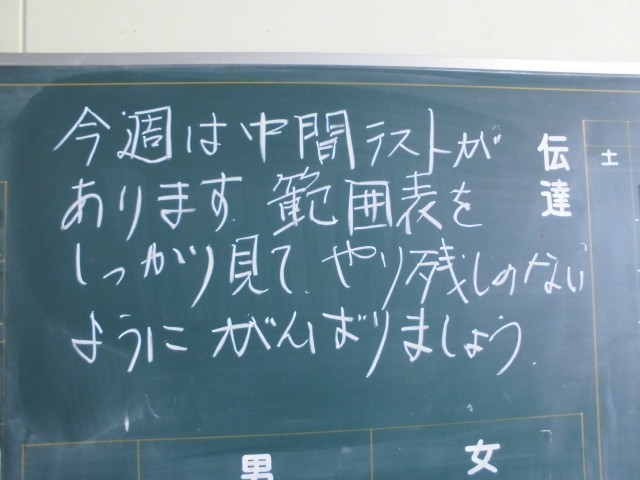 今週は中間テストが
あります.範囲表を
しっかり見て.やり残しのない
ようにがんばりましょう.
伝達
土
男
女